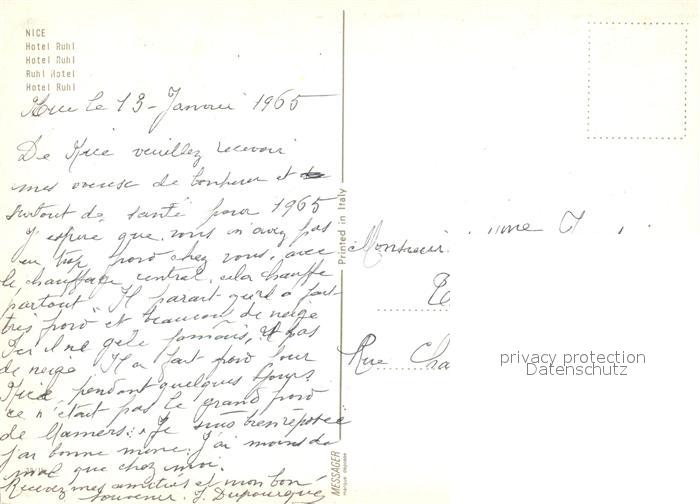 NICE
Hotel Ruhl
Hotel Ruhl
Ruhl Hotel
Hotel Ruhl
Nice le 13 - Janvier 1965
De Nice veuillez recevoir
mes voeux de bonheur et
surtout de santé pour 1965
J'espère que vous n'avez pas
eu trop froid chez vous, avec
le chauffage central, cela chauffe
partout. Il parait qu'il a fait
très froid et beaucoup de neige
Ici il ne gèle jamais, et pas
de neige. Il a fait froid pour
Nice, pendant quelques jours,
ce n'était pas le grand froid
de Mamers. Je suis bien reposée
j'ai bonne mine. J'ai moins de
mal que chez moi.
Recevez mes amitiés et mon bon
souvenir. J. Dufourque
Printed in Italy
MESSAGER
marque déposée
Monsieur
Rue Cha
privacy protection
Datenschutz